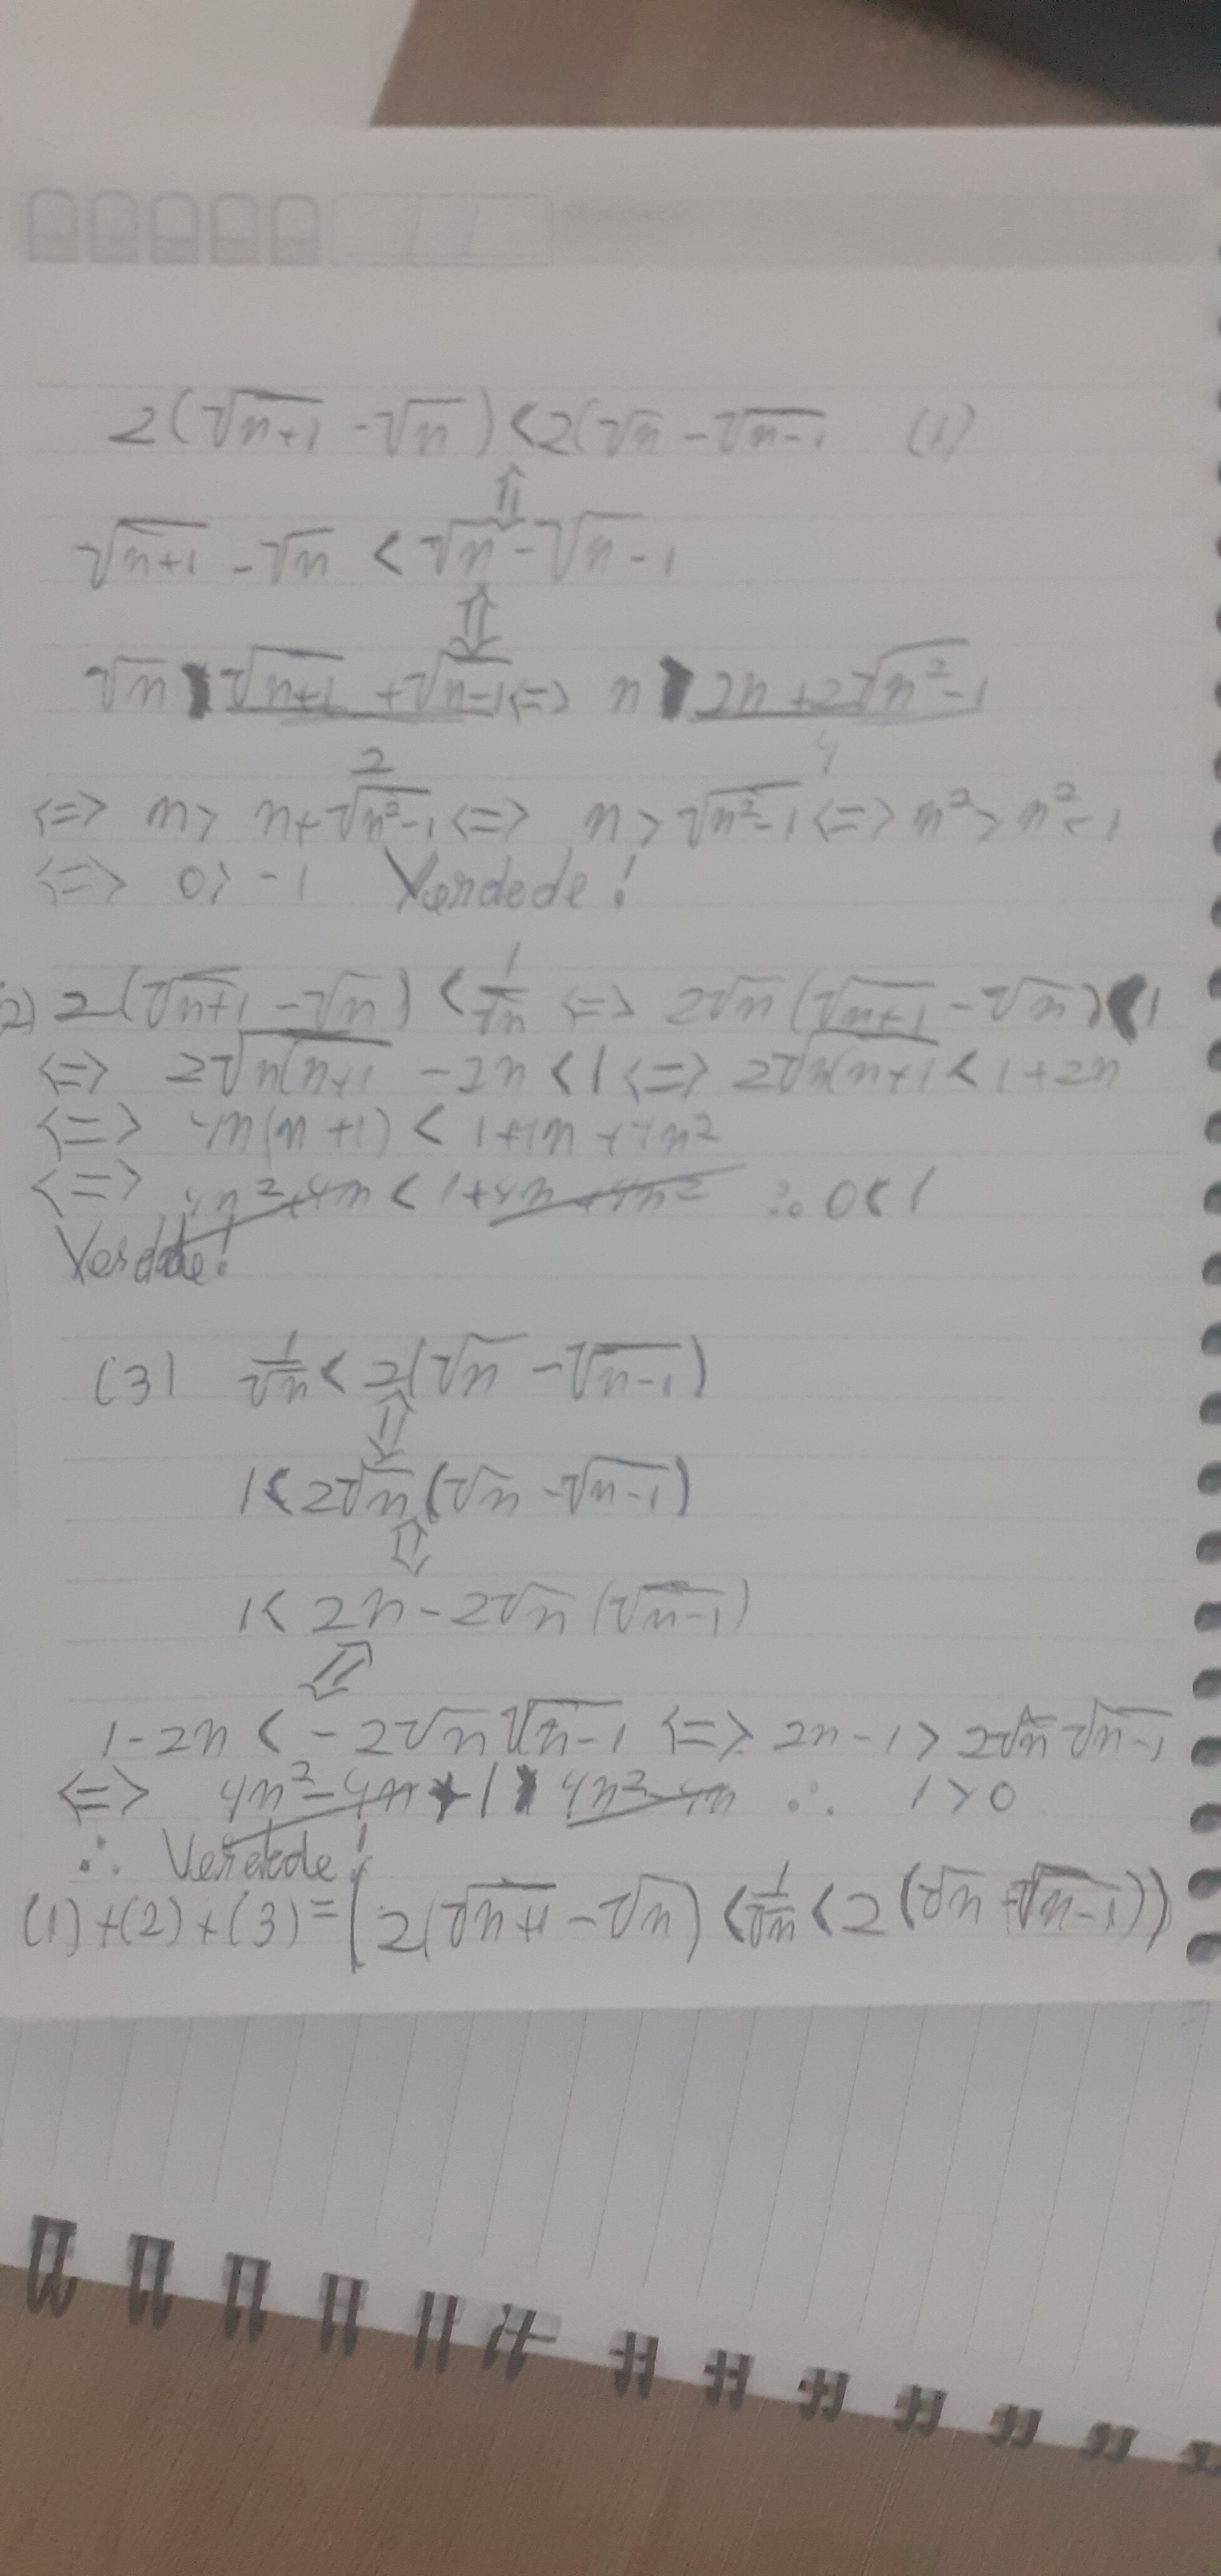 2(√(n+1) - √n) < 2(√n - √(n-1) (1)
⇕
√(n+1) - √n < √n - √(n-1)
⇕
√n > (√(n+1) + √(n-1))/2 <=> n > (2n + 2√(n²-1))/4
<=> 2n > n + √(n²-1) <=> n > √(n²-1) <=> n² > n² - 1
<=> 0 > -1 Verdade!
2) 2(√(n+1) - √n) < 1/√n <=> 2√n(√(n+1) - √n) < 1
<=> 2√(n(n+1) - 2n < 1 <=> 2√(n(n+1) < 1 + 2n
<=> 4n(n+1) < 1 + 4n + 4n²
<=> 4n² + 4n < 1 + 4n + 4n² ∴ 0 < 1
Verdade!
(3) 1/√n < 2(√n - √(n-1))
⇕
1 < 2√n(√n - √(n-1))
⇕
1 < 2n - 2√n(√(n-1))
⇕
1 - 2n < -2√n √(n-1) <=> 2n - 1 > 2√n √(n-1)
<=> 4n² - 4n + 1 > 4n² - 4n ∴ 1 > 0
∴ Verdade!
(1) + (2) + (3) = (2(√(n+1) - √n) < 1/√n < 2(√n - √(n-1)))